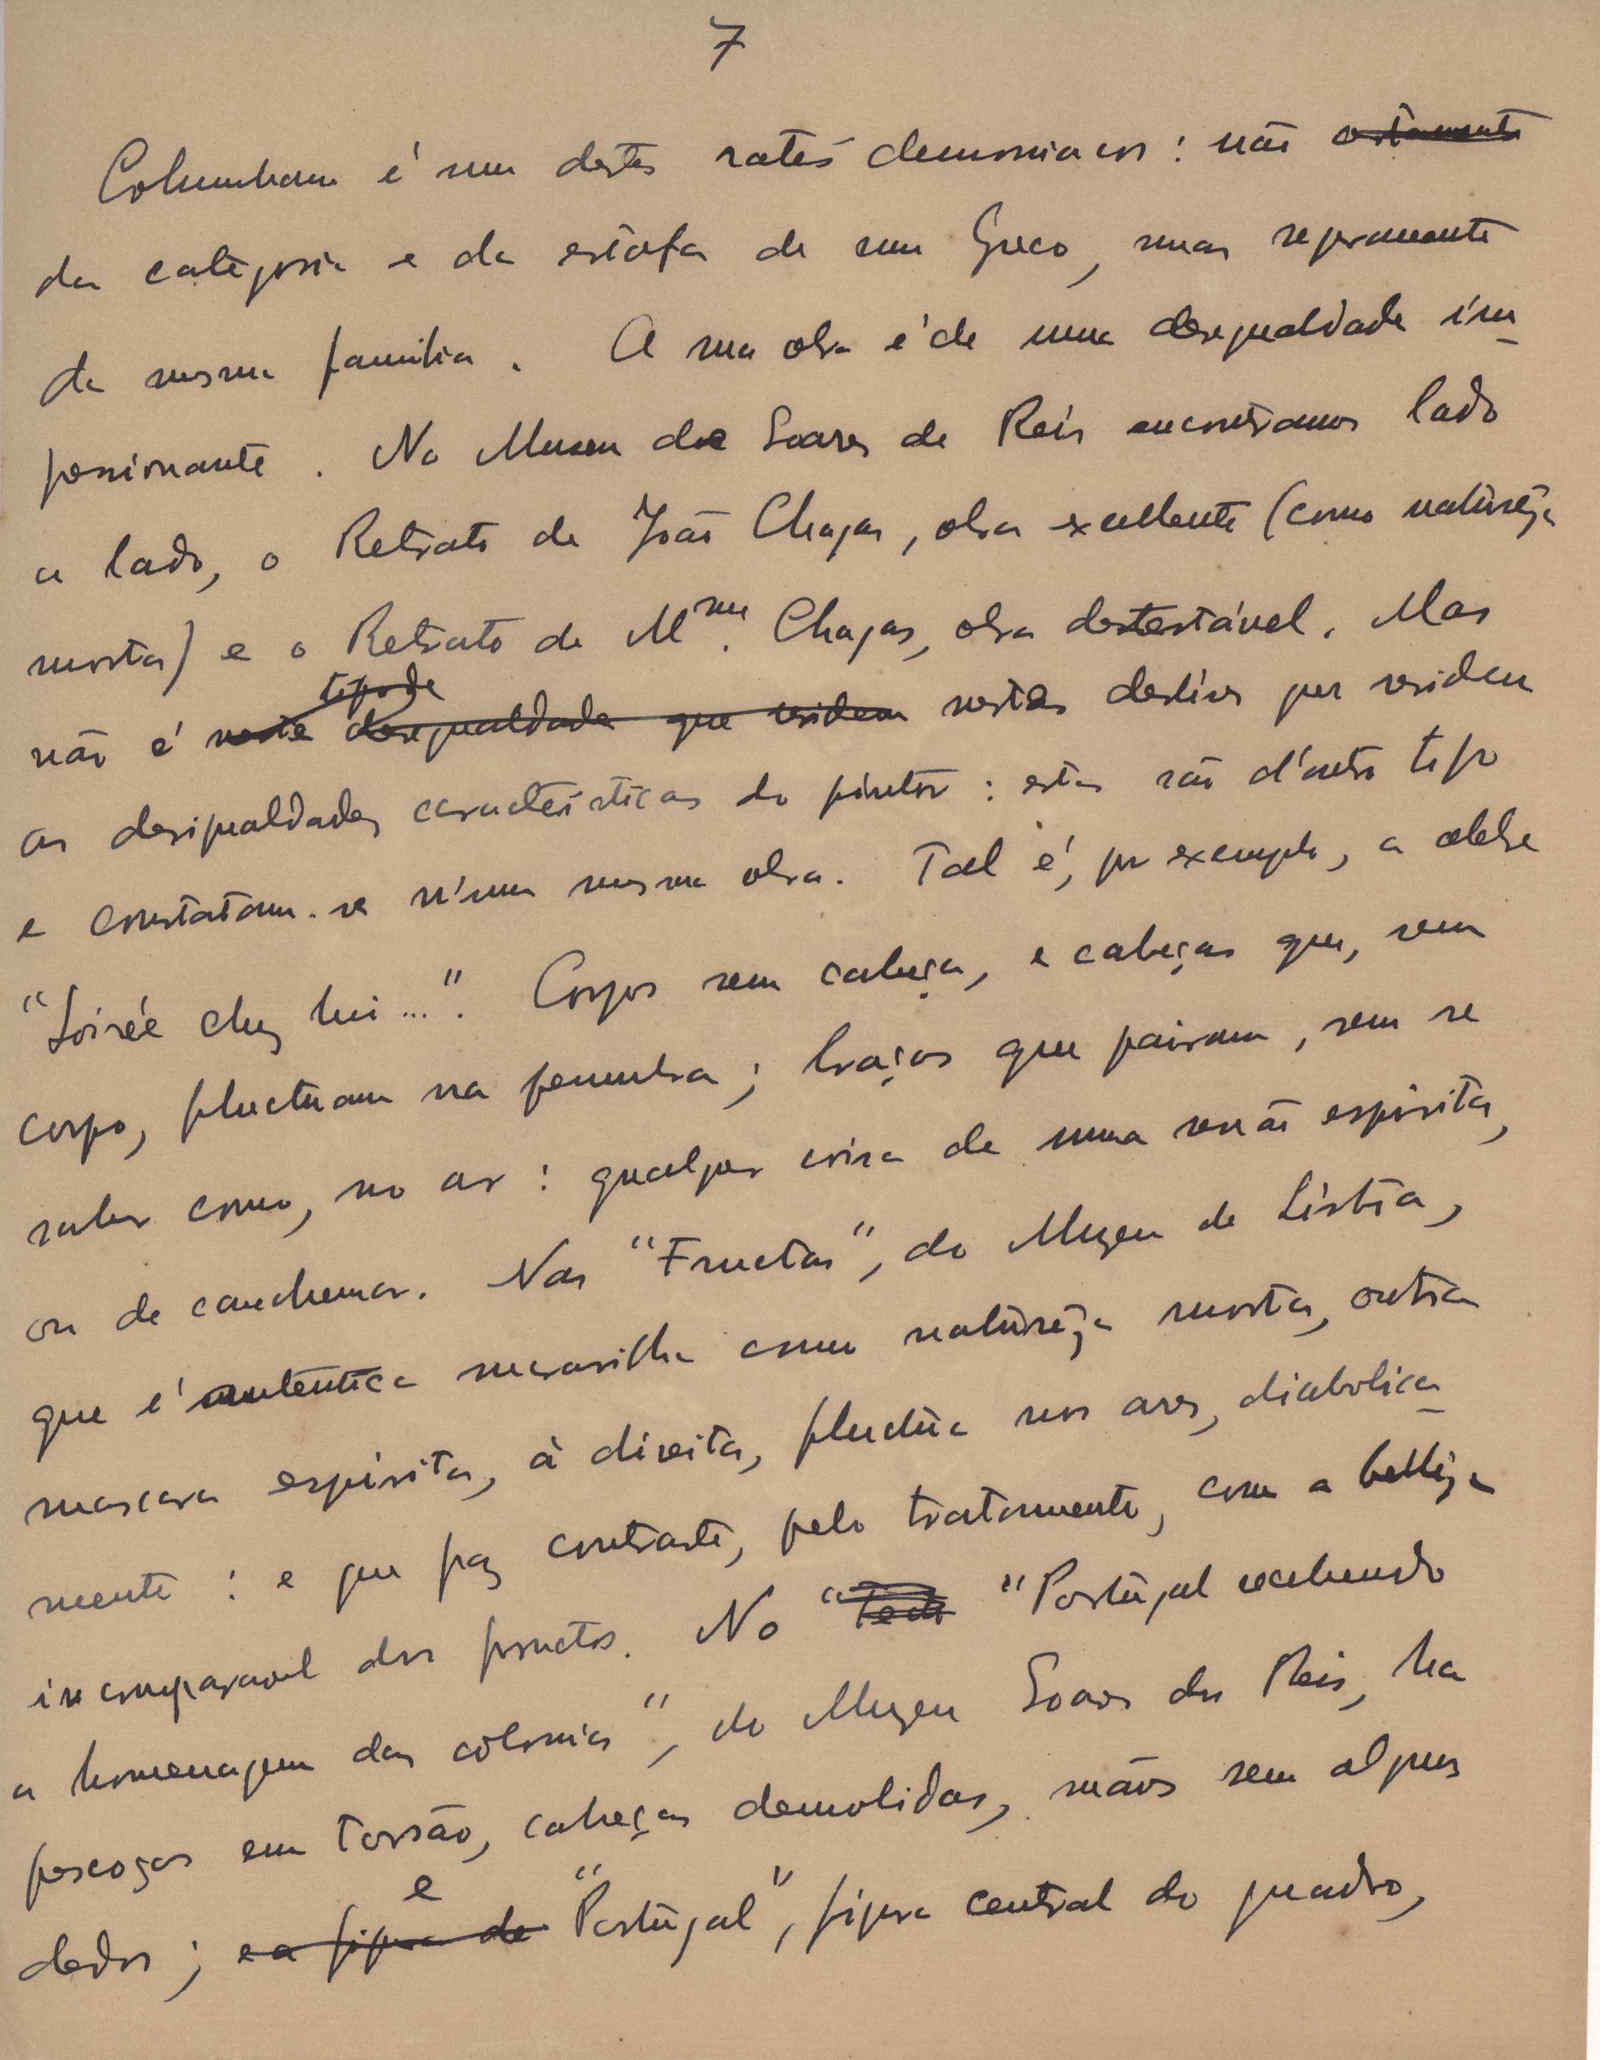 7
Columbano é um destes ratés demoniacos: não certamente
da categoria e da estofa de um Greco, mas seguramente
da mesma familia. A sua obra é de uma desegualdade im-
pressionante. No Museu de Soares de Reis encontramos lado
a lado, o Retrato de João Chagas, obra excellente (como naturêza
morta) e o Retrato de Mme. Chagas, obra destestável. Mas
tipo de
não é neste desegualdade que residem nestes deslises que residem
as desigualdades caracteristicas do pintor: estas são d'outro tipo
e constatam-se n'uma mesma obra. Tal é, por exemplo, a celebre
"Soirée chez lui...". Corpos sem cabeça, e cabeças que, sem
corpo, fluctuam na penumbra; braços que pairam, sem se
saber como, no ar: qualquer coisa de uma sessão espirita,
ou de cauchemar. Nas "Fructas", do Muzeu de Lisbôa,
que é autêntica maravilha como naturêza morta, outra
mascara espirita, à direita, fluctúa nos ares, diabolica-
mente: e que faz contraste, pelo tratamento, com a bellêza
incomparavel dos fructos. No "Teto "Portugal recebendo
a homenagem das colonias", do Muzeu Soares dos Reis, ha
pescoços em torsão, cabeças demolidas, mãos sem alguns
e
dedos; e a figura de "Portugal", figura central do quadro,